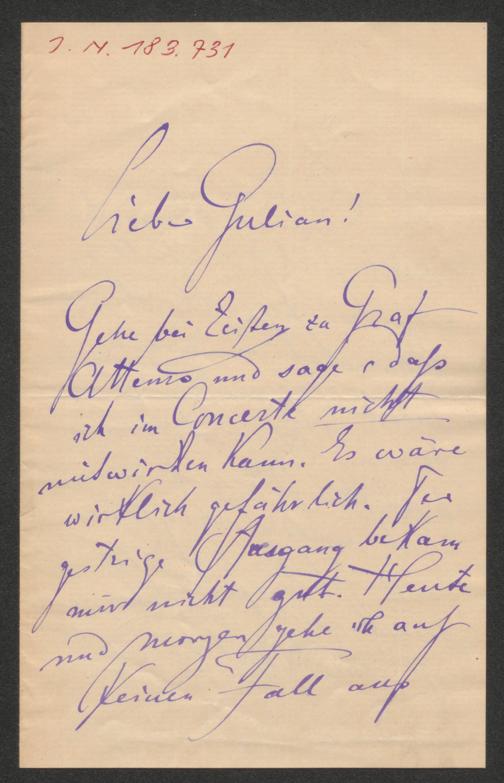 J. N. 183.731
Lieber Julian!
Gehe bei Zeiten zu Graf
Attems und sage, daß
ich im Concerte nicht
mitwirken kann. Es wäre
wirklich gefährlich. Der
gestrige Ausgang bekam
mir nicht gut. Heute
und morgen gehe ich auf
keinen Fall aus